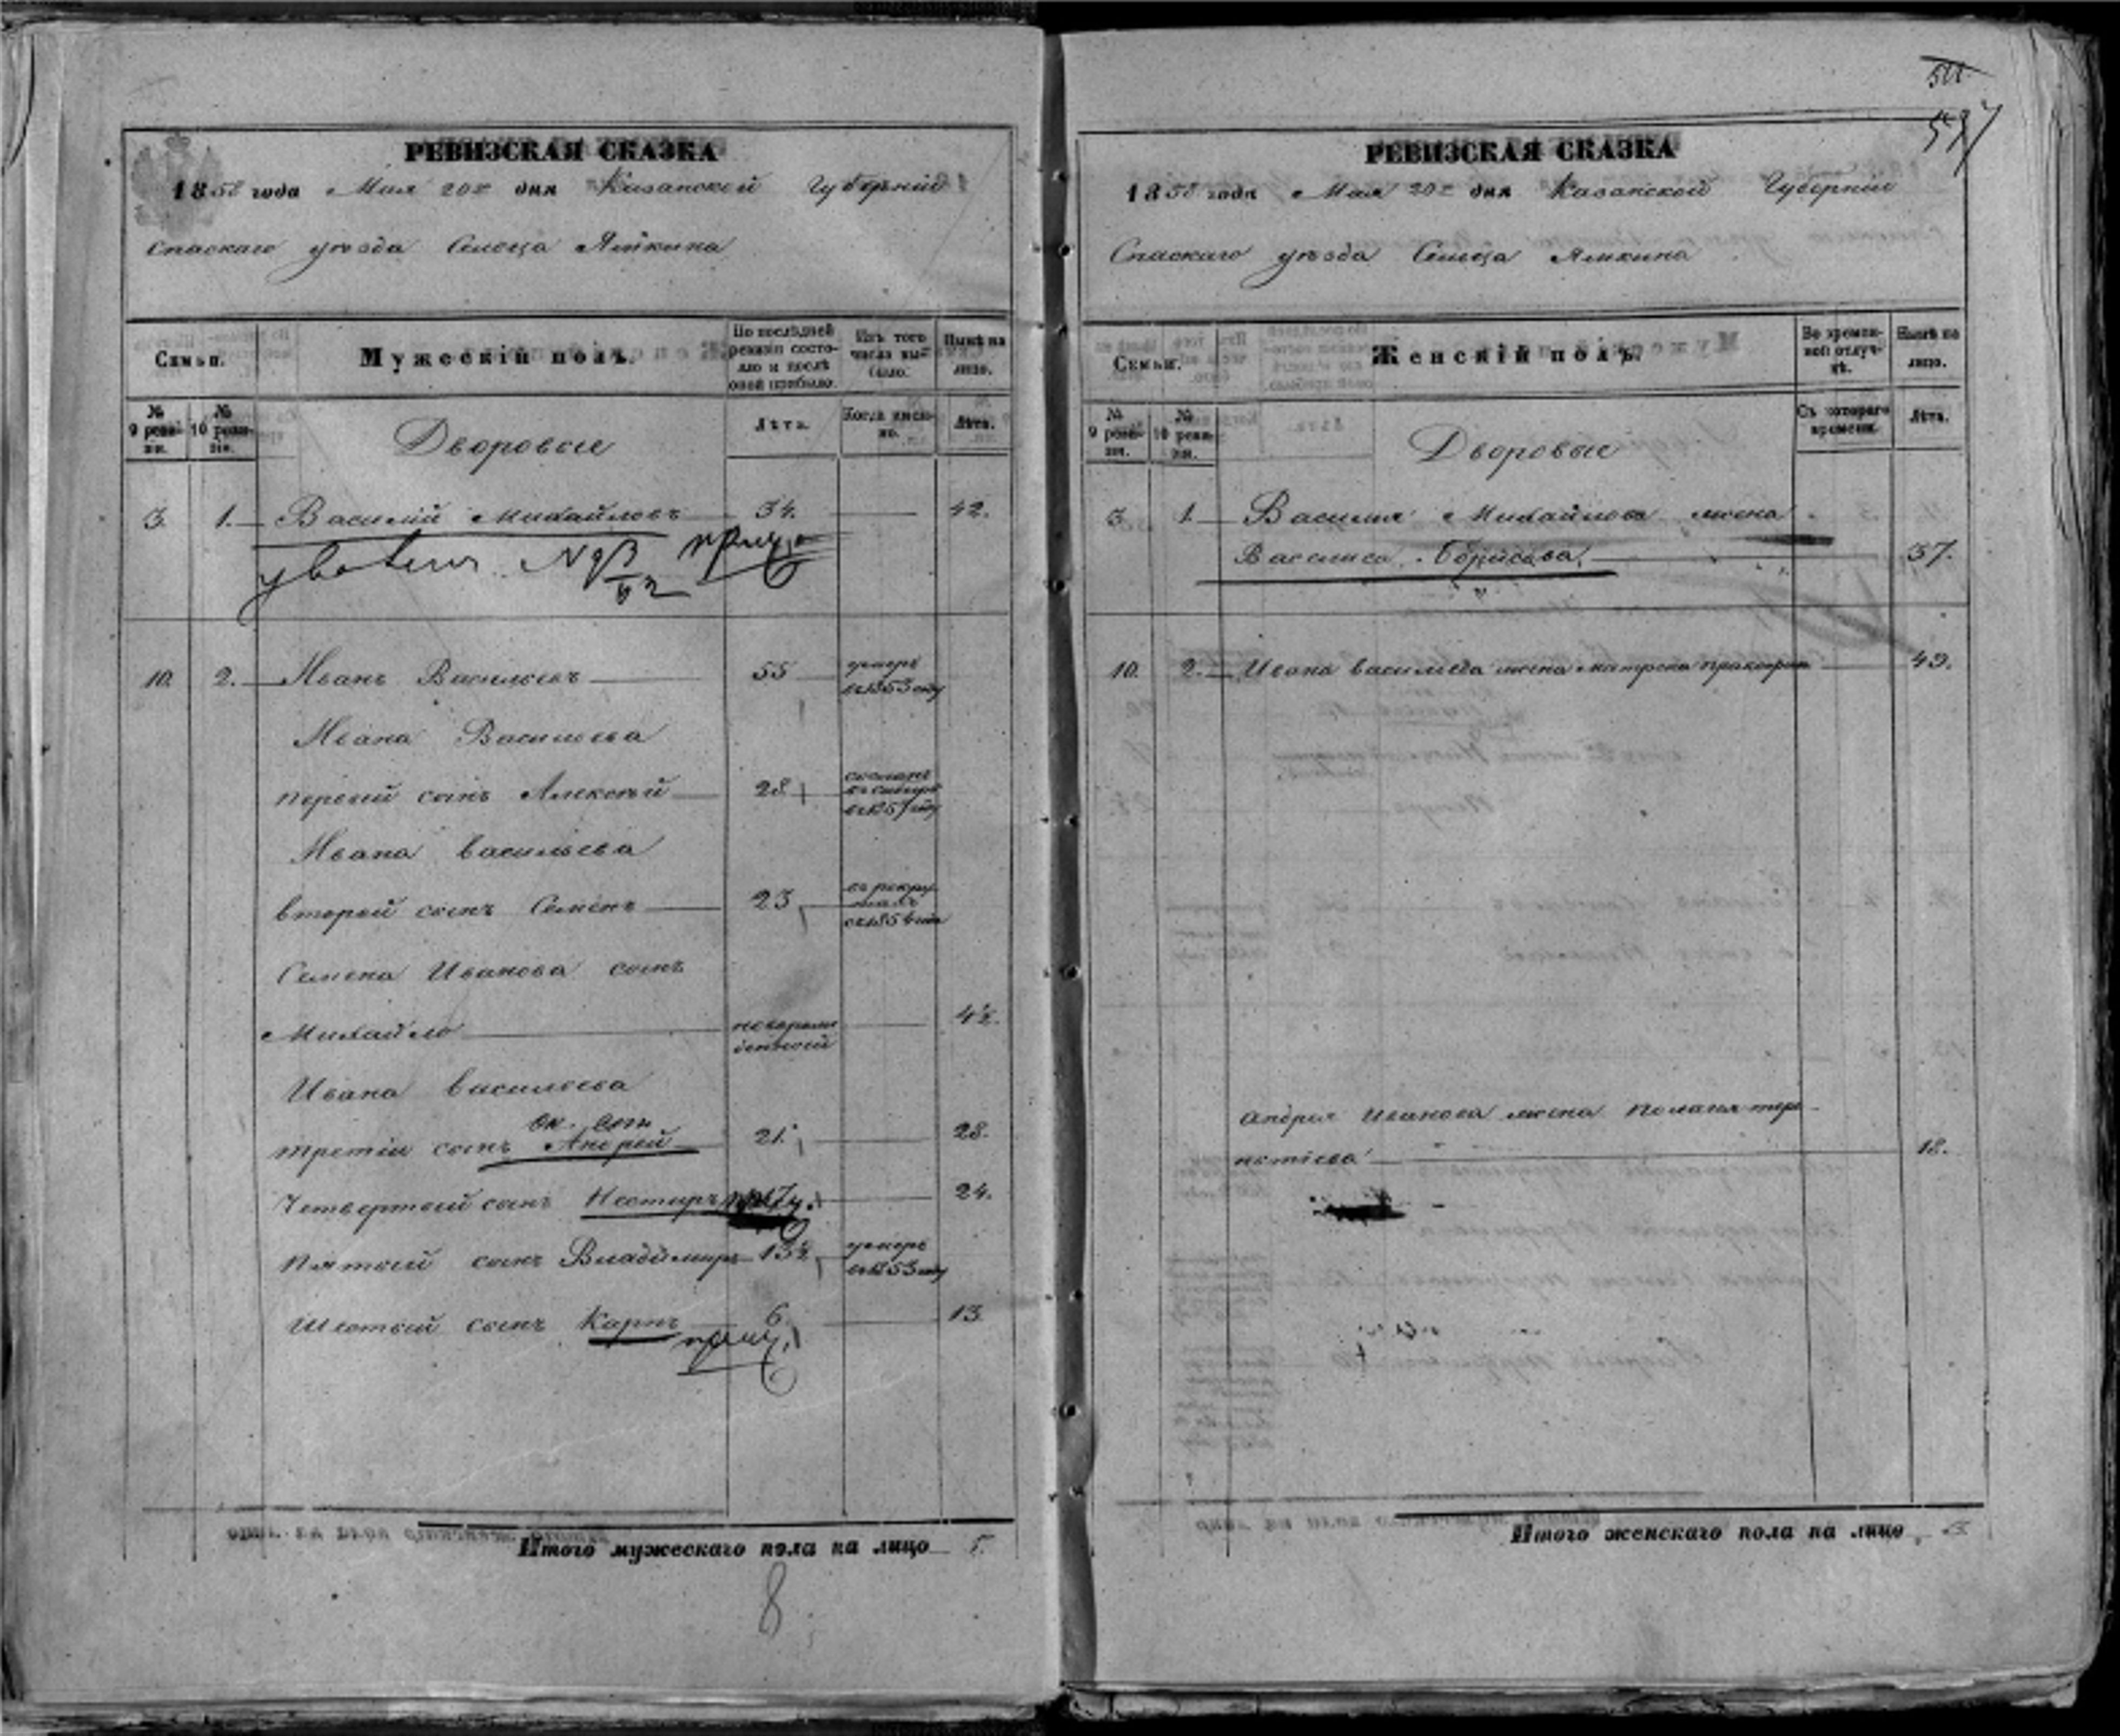 РЕВИЗСКАЯ СКАЗКА
1858 года Мая 20го дня Казанской Губерніи
Спаскаго уѣзда Сельца Ямкина
Семьи.
Мужескій полъ.
По послѣдней ревизіи состояло и послѣ оной прибыло.
Изъ того числа выбыло.
Нынѣ на лицо.
№ 9 ревизіи.
№ 10 ревизіи.
Дворовые
Лѣта.
Когда именно.
Лѣта.
3. 1. Василій Михайловъ 34. 42.
уволенъ №
10. 2. Иванъ Васильевъ 55 умеръ въ 1853 году
Ивана Васильева
первый сынъ Алексѣй 28 сосланъ въ сибирь въ 1857 году
Ивана Васильева
второй сынъ Семенъ 23 въ рекрутахъ съ 1854 года
Семена Иванова сынъ
Михайло новорожденный 4½.
Ивана Васильева
третій сынъ Андрей 21. 28.
Четвертый сынъ Нестиръ 17 24.
Пятый сынъ Владимиръ 13½ умеръ въ 1853 году
Шестый сынъ Карпъ 6. 13
Итого мужескаго пола на лицо 5.
8
511
РЕВИЗСКАЯ СКАЗКА
1858 года Мая 20го дня Казанской Губерніи
Спаскаго уѣзда Сельца Ямкина
Семьи.
Женскій полъ.
Во временной отлучкѣ.
Нынѣ на лицо.
№ 9 ревизіи.
№ 10 ревизіи.
Дворовые
Съ котораго времени.
Лѣта.
3 1. Василья Михайлова жена
Василиса Борисова 37.
10. 2. Ивана Васильева жена Матрена 49.
Андрея Иванова жена Пелагея Тере
нтіева 18.
Итого женскаго пола на лицо 3.